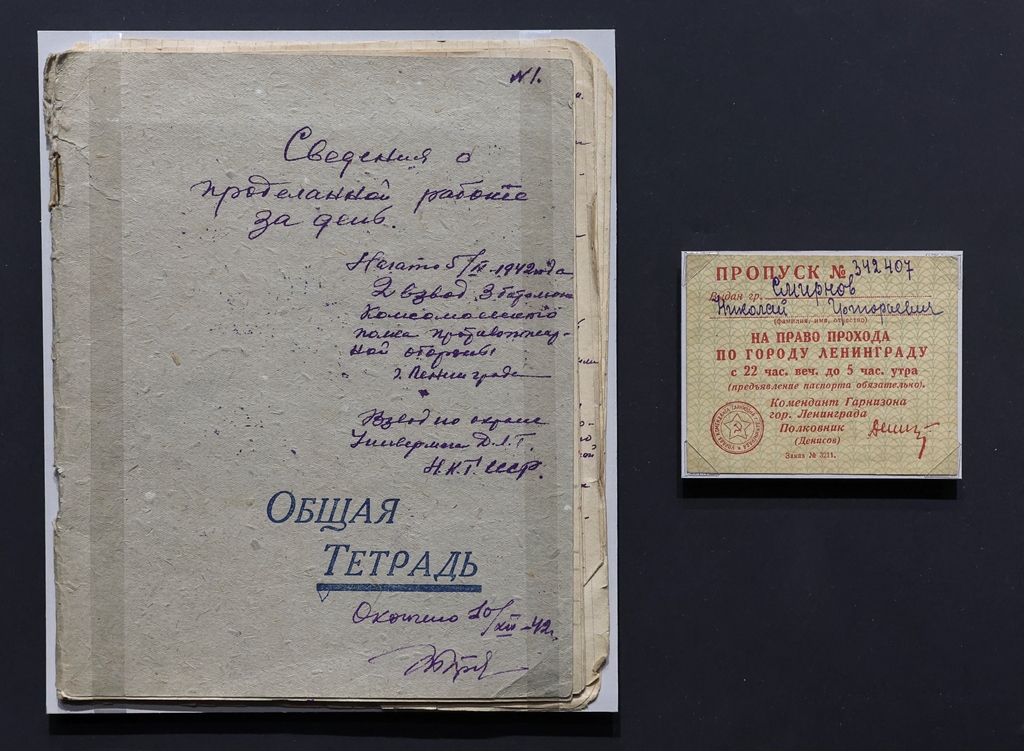 №1.
Сведения о
проделанной работе
за день.
Начато 5/IX-1942 года
2 взвод 3 батальона
Комсомольского
полка противопожар-
ной обороны
г. Ленинграда
Взвод по охране
Универмага Д.Л.Т.
Н.К.Т. СССР.
ОБЩАЯ
ТЕТРАДЬ
Окончено 10/XII-42г.
ПРОПУСК № 342407
Выдан гр. Смирнов
Николай Григорьевич
(фамилия, имя, отчество)
НА ПРАВО ПРОХОДА
ПО ГОРОДУ ЛЕНИНГРАДУ
с 22 час. веч. до 5 час. утра
(предъявление паспорта обязательно).
Комендант Гарнизона
гор. Ленинграда
Полковник
(Денисов)
Заказ № 3211.